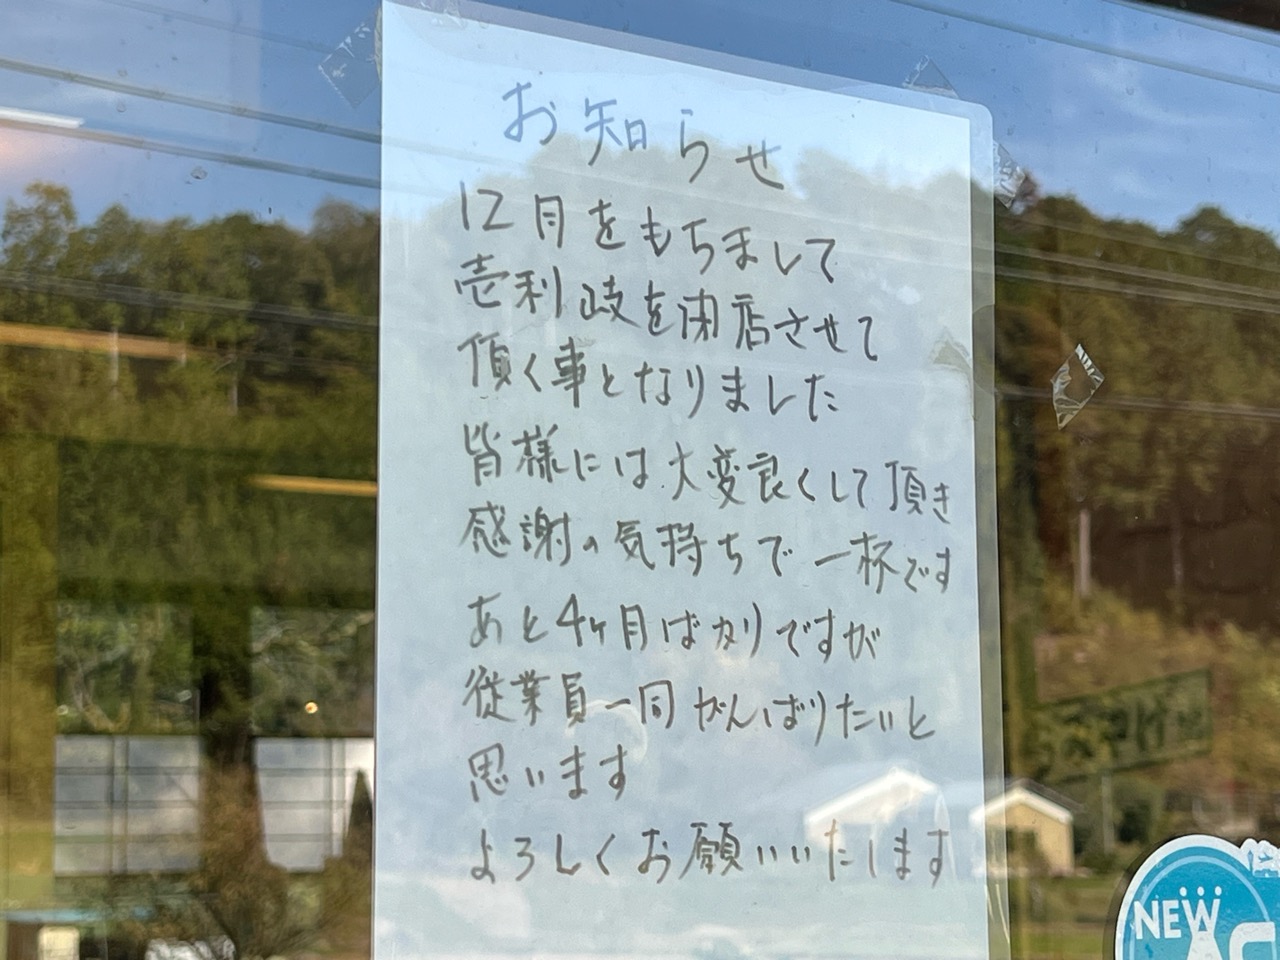 お知らせ
12月をもちまして
壱利岐を閉店させて
頂く事となりました
皆様には大変良くして頂き
感謝の気持ちで一杯です
あと4ヶ月ばかりですが
従業員一同がんばりたいと
思います
よろしくお願いいたします
NEW